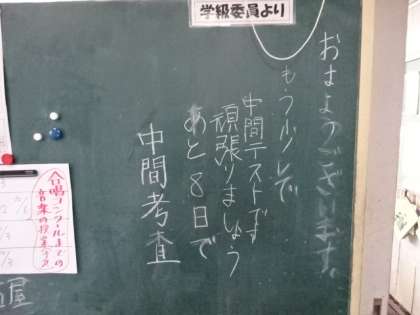 学級委員より
おはようございます。
もう少しで
中間テストです
頑張りましょう
あと8日で
中間考査
合唱コンクールまでの
音楽の授業